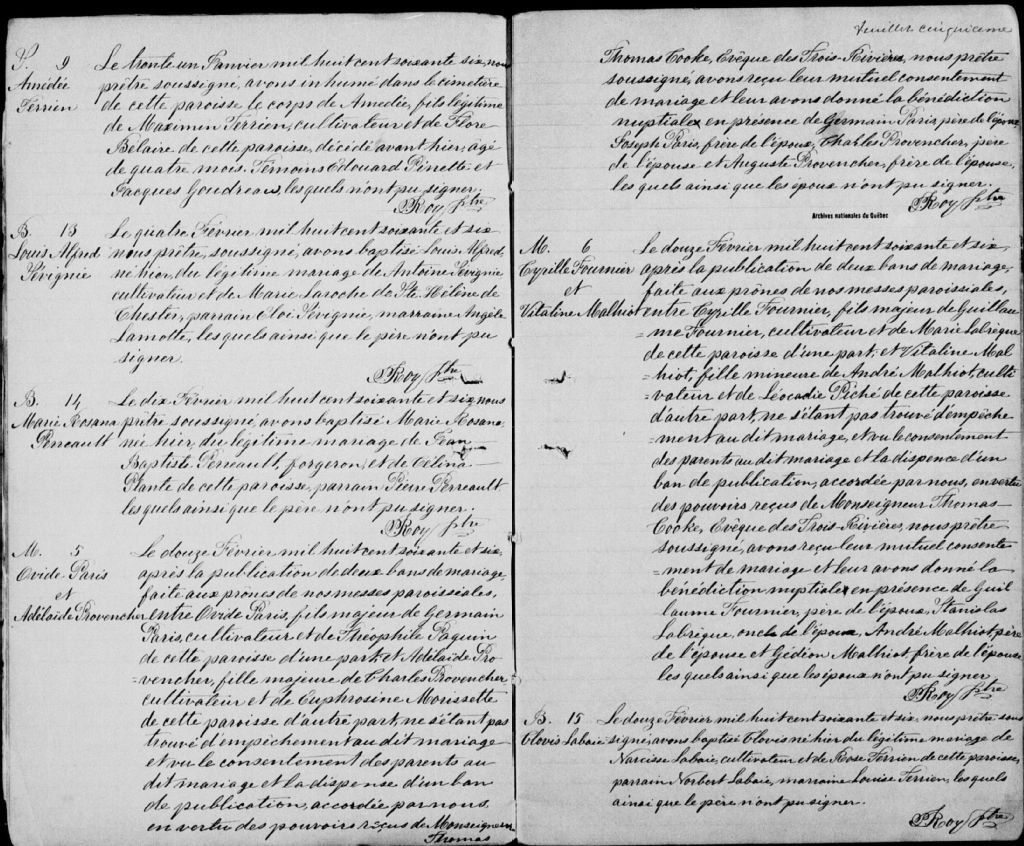 S. 9
Amédée
Terrien
Le trente un Janvier mil huit cent soixante six, nous
prêtre soussigné, avons inhumé dans le cimetière
de cette paroisse le corps de Amedée, fils légitime
de Maximin Terrien, cultivateur et de Flore
Bélaire de cette paroisse, décédé avant hier, agé
de quatre mois. Temoins Edouard Pinette et
Jacques Goudreau, lesquels n'ont pu signer.
PRoy Ptre
B. 13
Louis Alfred
Pévignie
Le quatre Février mil huit cent soixante et six
nous prêtre, soussigné, avons baptisé Louis Alfred,
né hier, du legitime mariage de Antoine Pévignie
cultivateur et de Marie Laroche de Ste Hélène de
Chester, parrain Eloi Pévignie, marraine Angèle
Lamotte, lesquels ainsi que le père n'ont pu
signer.
PRoy Ptre
B. 14
Marie Rosana
Perreault
Le dix Février mil huit cent soixante et six nous
prêtre soussigné, avons baptisé Marie Rosana
né hier, du légitime mariage de Jean
Baptiste Perreault, forgeron, et de Célina
Plante de cette paroisse, parrain Pierre Perreault
lesquels ainsi que le père n'ont pu signer.
PRoy Ptre
M. 5
Ovide Paris
et
Adélaide Provencher
Le douze Février mil huit cent soixante et six,
après la publication de deux bans de mariage,
faite aux prônes de nos messes paroissiales,
entre Ovide Paris, fils majeur de Germain
Paris, cultivateur et de Théophile Paquin
de cette paroisse d'une part, et Adélaide Pro
=vencher, fille majeure de Charles Provencher
cultivateur et de Euphrosine Mourissette
de cette paroisse d'autre part, ne s'étant pas
trouvé d'empêchement au dit mariage
et vu le consentement des parents au
dit mariage et la dispense d'un ban
de publication, accordée par nous,
en vertu des pouvoirs reçus de Monseigneur
Thomas
feuillet cinquieme
Thomas Cooke, Evêque des Trois-Rivières, nous prêtre
soussigné, avons reçu leur mutuel consentement
de mariage et leur avons donné la bénédiction
nuptiale, en présence de Germain Paris, père de l'époux
Joseph Paris, frère de l'époux, Charles Provencher, père
de l'épouse et Auguste Provencher, frère de l'épouse,
lesquels ainsi que les époux n'ont pu signer.
PRoy Ptre
Archives nationales du Québec
M. 6
Cyrille Fournier
et
Vitaline Malhiot
Le douze Février mil huit cent soixante et six
après la publication de deux bans de mariage,
faite aux prônes de nos messes paroissiales,
entre Cyrille Fournier, fils majeur de Guillau
=me Fournier, cultivateur et de Marie Labrèque
de cette paroisse d'une part, et Vitaline Mal
=hiot, fille mineure de André Malhiot, culti
=vateur et de Léocadie Piché de cette paroisse
d'autre part, ne s'étant pas trouvé d'empêche
=ment au dit mariage, et vu le consentement
des parents au dit mariage et la dispence d'un
ban de publication, accordée par nous, en vertu
des pouvoirs reçus de Monseigneur Thomas
Cooke, Evêque des Trois-Rivières, nous prêtre
soussigné, avons reçu leur mutuel consente
=ment de mariage et leur avons donné la
bénédiction nuptiale en présence de Guil
laume Fournier, père de l'époux, Stanislas
Labrèque, oncle de l'époux, André Malhiot, père
de l'épouse et Gédéon Malhiot, frère de l'épouse
lesquels ainsi que les époux n'ont pu signer
PRoy Ptre
B. 15
Clovis Labaie
Le douze Février mil huit cent soixante et six nous prêtre sous
signé, avons baptisé Clovis né hier du légitime mariage de
Narcisse Labaie, cultivateur et de Rose Terrien de cette paroisse,
parrain Norbert Labaie, marraine Louise Terrien, lesquels
ainsi que le père n'ont pu signer.
PRoy Ptre